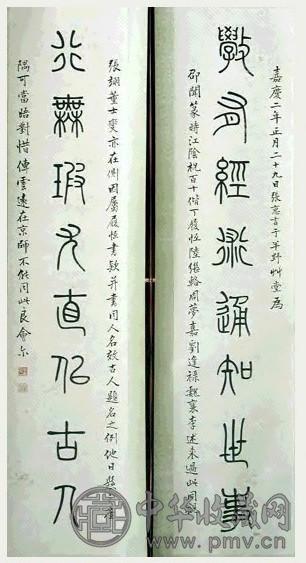 嘉慶二年正月二十九日張惠言于羊野艸堂為
學有經術通知世事
邵聞篆時江陰祝百十偕丁履恒陸繼輅周夢嘉劉逢祿魏襄李述來過此同
張翊董士 亦在側因屬履恒書款并書同人名效古人題名之例他日
行無瑕尤直佀古人
隅可當晤對惜傳雲遠在京師不能同此良會尔
中华收藏网
www.pmv.cn